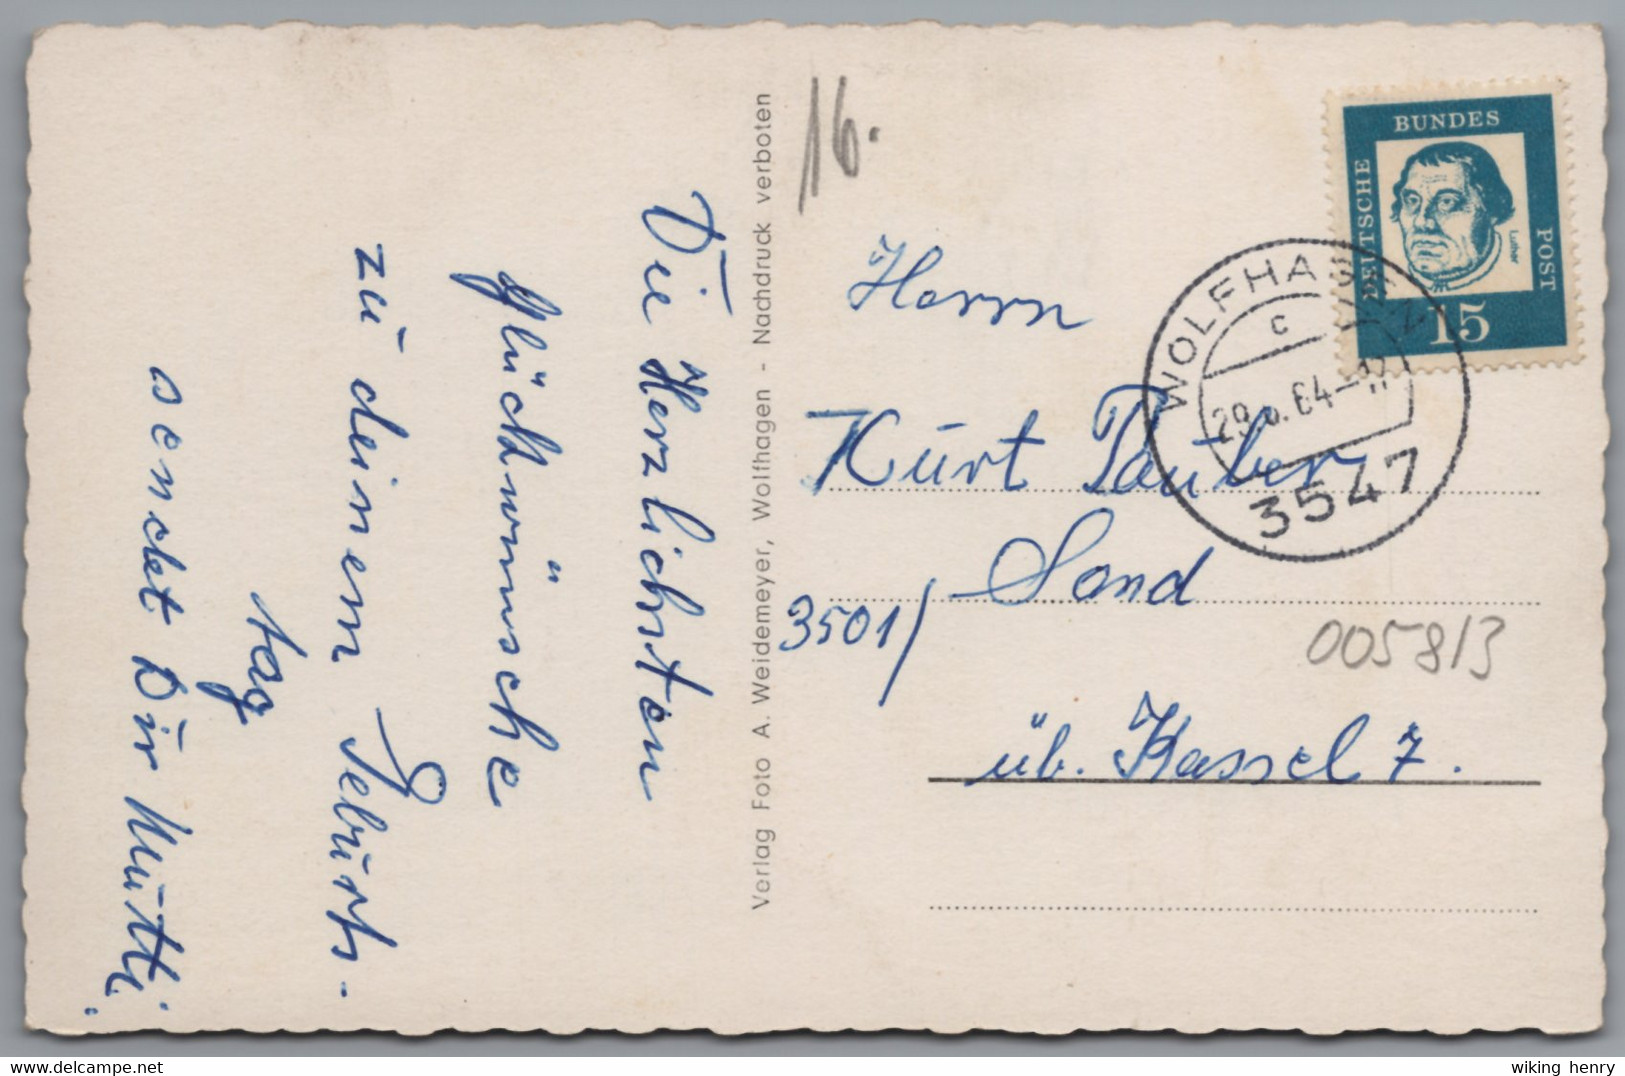 Die Herzlichsten
Glückwünsche
zu deinem Geburts-
tag
sendet Dir Mutti.
Verlag Foto A. Weidemeyer, Wolfhagen - Nachdruck verboten
16.
DEUTSCHE
BUNDES
POST
Luther
15
WOLFHAGEN
c
3547
Herrn
Kurt Tauber
Sand
3501/
005813
üb. Kassel 7.
www.delcampe.net
wiking henry